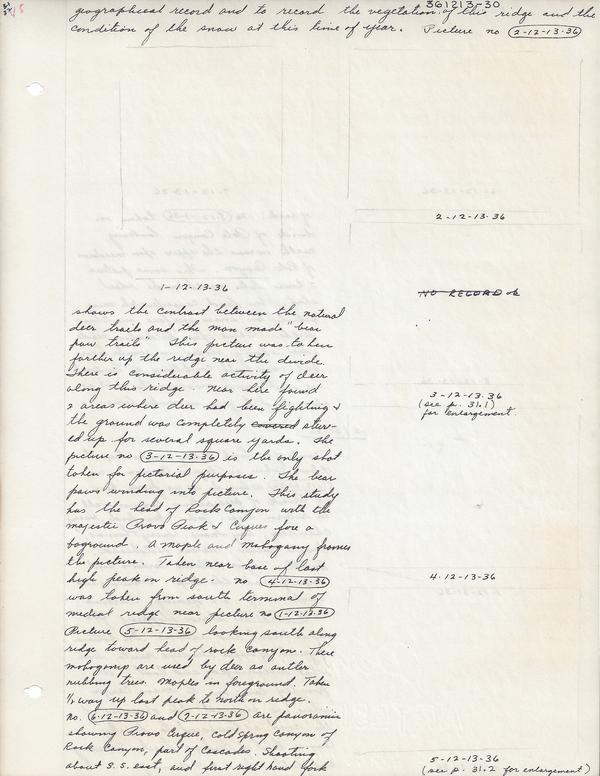 361213-30
geographical record and to record the vegetation of this ridge and the
condition of the snow at this time of year. Picture no 2-12-13-36
2-12-13-36
1-12-13-36
NO RECORD ok
shows the contrast between the natural
deer trails and the man made "bear
paw trails" This picture was taken
farther up the ridge near the divide.
There is considerable activity of deer
along this ridge. Near here found
2 areas where deer had been fighting &
the ground was completely covered stirr-
ed up for several square yards. The
picture no. 3-12-13-36 is the only shot
taken for pictorial purposes. The bear
paws winding into picture. This study
has the head of Rock Canyon with the
majestic Provo Peak & Cirques fore a
baground. A maple and mahogany frames
the picture. Taken near base of last
high peak on ridge. no 4-12-13-36
was taken from south terminal of
medial ridge near picture no 1-12-13-36
Picture 5-12-13-36 looking south along
ridge toward head of rock canyon. These
mahogany are used by deer as antler
rubbing trees. Maples in foreground. Taken
1/3 way up last peak to north on ridge.
no. 6-12-13-36 and 7-12-13-36 are panoramic
showing Provo Cirque, cold spring canyon of
Rock Canyon, part of Cascades. Shooting
about S.S. east, and first right hand fork
3-12-13-36
(see p. 31.1)
for enlargement.
4-12-13-36
5-12-13-36
(see p. 31.2 for enlargement)